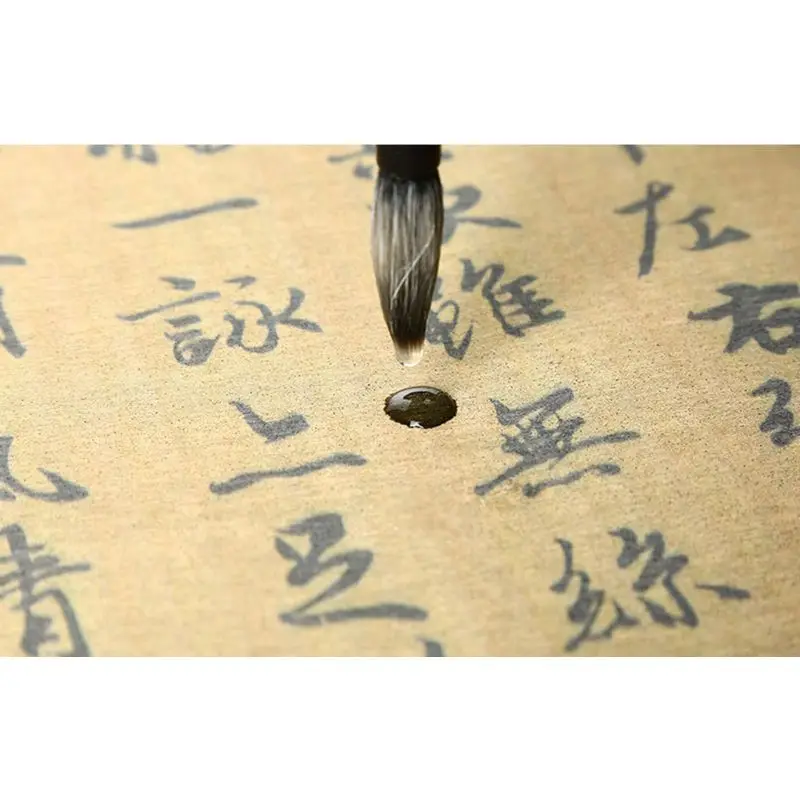 左右引
次雖無絲
一詠亦足